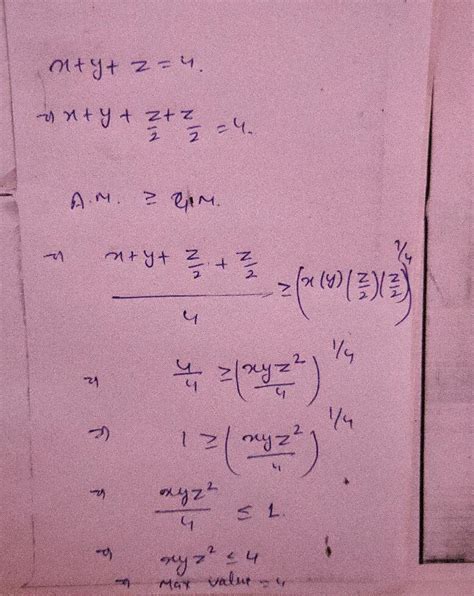 x+y+z=4.
⇒ x+y+z/2+z/2=4.
A.M. ≥ G.M.
⇒ (x+y+z/2+z/2)/4 ≥ (x(y)(z/2)(z/2))^1/4
⇒ 4/4 ≥ (xyz²/4)^1/4
⇒ 1 ≥ (xyz²/4)^1/4
⇒ xyz²/4 ≤ 1.
⇒ xyz² ≤ 4
⇒ Max value = 4